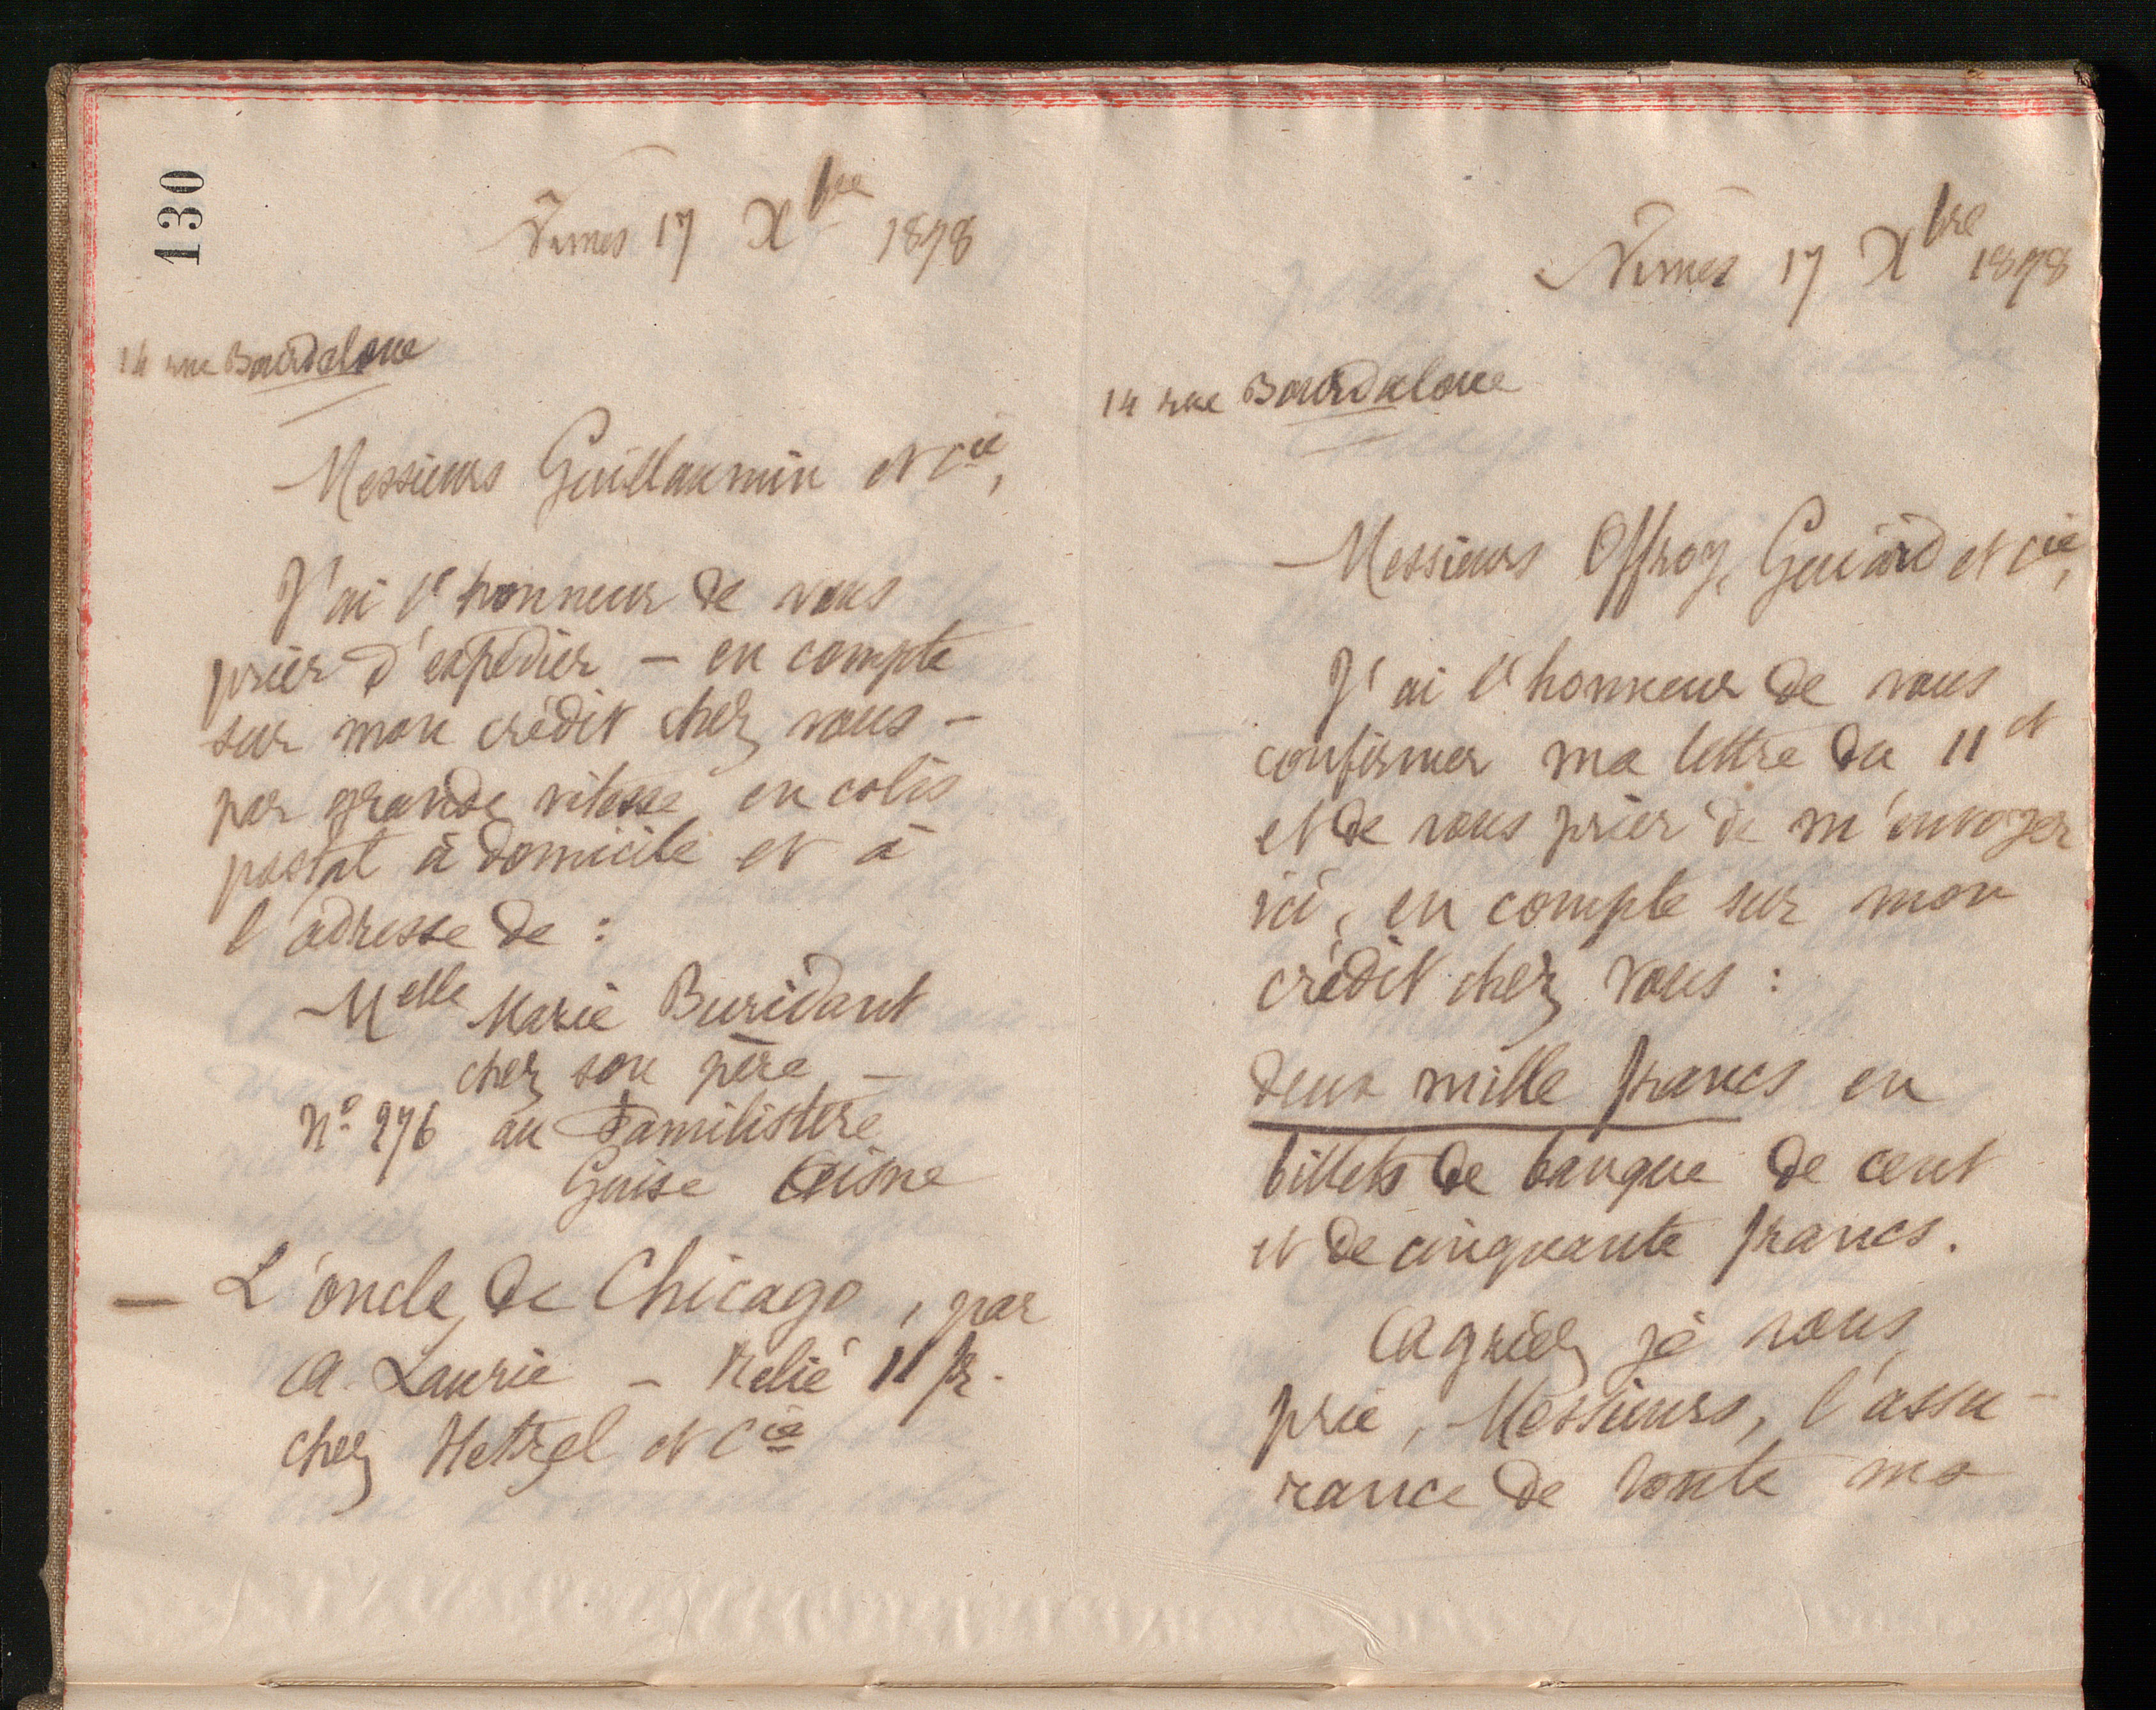 130
Nîmes 17 Xbre 1898
14 rue Bourdaloue
Messieurs Guillaumin et Cie,
J'ai l'honneur de vous
prier d'expédier – en compte
sur mon crédit chez vous –
par grande vitesse, en colis
postal à domicile et à
l'adresse de :
Melle Marie Buridant
chez son père –
N° 276 au Familistère
Guise Aisne
— L'oncle de Chicago, par
A. Laurie – Relié 11 fr.
chez Hetzel et Cie
Nîmes 17 Xbre 1898
14 rue Bourdaloue
Messieurs Offroy, Guiard et Cie,
J'ai l'honneur de vous
confirmer ma lettre du 11 ct
et de vous prier de m'envoyer
ici, en compte sur mon
crédit chez vous :
deux mille francs en
billets de banque de cent
et de cinquante francs.
Agréez je vous
prie, Messieurs, l'assu-
rance de toute ma